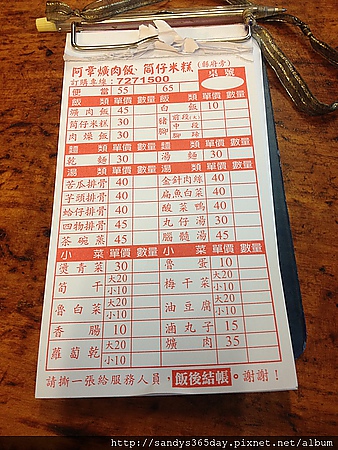 阿章爌肉飯·筒仔米糕(縣府旁)
訂購專線:7271500 桌號
便當 55 65
飯類 單價 數量 飯類 單價 數量
爌肉飯 45 白飯 10
筒仔米糕 30 豬腳 前段(大) 中段 腳蹄
肉燥飯 30
麵類 單價 數量 麵類 單價 數量
乾麵 30 湯麵 30
湯類 單價 數量 湯類 單價 數量
苦瓜排骨 40 金針肉絲 40
芋頭排骨 40 扁魚白菜 40
蛤仔排骨 40 酸菜鴨 40
四物排骨 45 丸仔湯 30
茶碗蒸 45 腦髓湯 45
小菜 單價 數量 小菜 單價 數量
燙青菜 30 魯蛋 10
筍干 大20 小10 梅干菜 大20 小10
魯白菜 大20 小10 油豆腐 大20 小10
香腸 10 滷丸子 15
蘿蔔乾 大20 小10 爌肉 35
請撕一張給服務人員,飯後結帳。謝謝!
http://sandys365day.pixnet.net/album